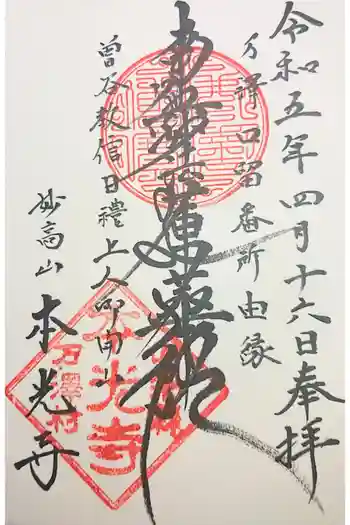 令和五年四月十六日奉拝
万澤口留番所由縁
南無妙法蓮華経
曽谷教信日禮上人御開山
妙高山
本光寺
本光寺
万澤村